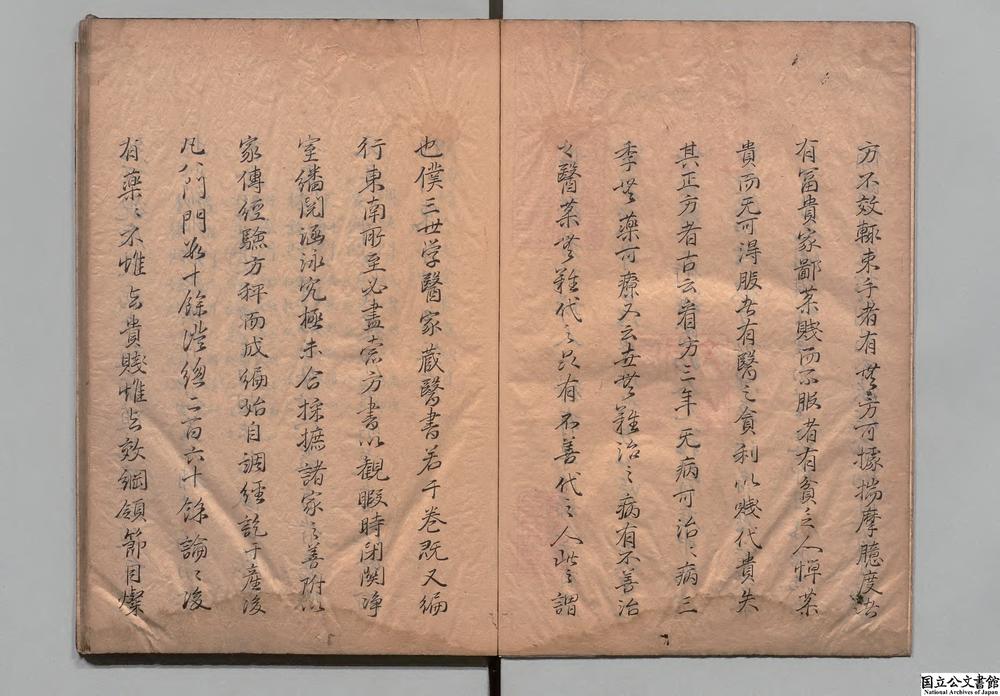 方不效輒束手者有無方可據揣摩臆度者
有富貴家鄙藥賤而不服者有貧乏人憚藥
貴而无可得服者有醫之貪利以賤代貴失
其正方者古云看方三年无病可治〻病三
年無藥可療又云世無難治之病有不善治
之醫藥無難代之品有不善代之人此之謂
也僕三世学醫家蔵醫書若干卷既又編
行東南所至必盡索方書以観暇時閉関净
室繙閲涵泳究極未合採摭諸家之善附以
家傳經驗方秤而成編始自調經訖于産後
凡八門門数十餘體總二百六十餘論〻後
有藥〻不惟其貴賤惟其效綱領節目燦
国立公文書館
National Archives of Japan